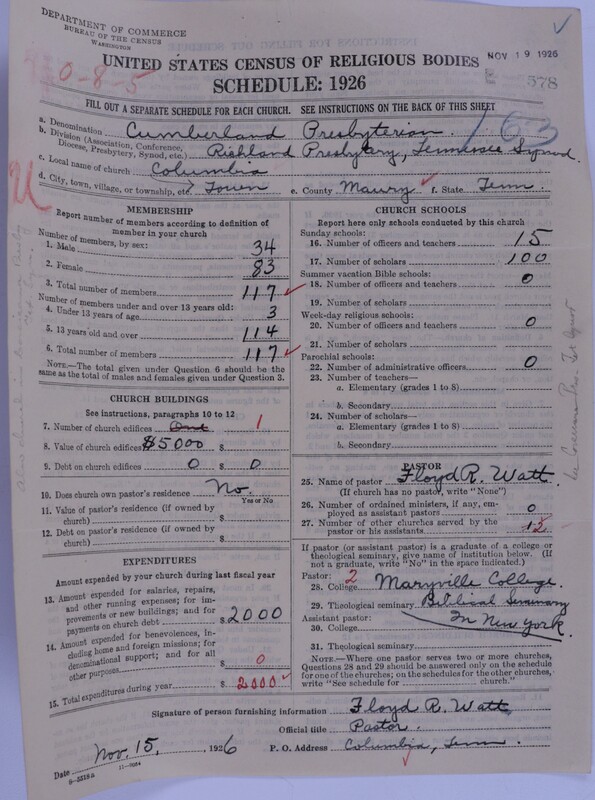 DEPARTMENT OF COMMERCE
BUREAU OF THE CENSUS
WASHINGTON
0-8-5
NOV 19 1926
578
UNITED STATES CENSUS OF RELIGIOUS BODIES
SCHEDULE: 1926
FILL OUT A SEPARATE SCHEDULE FOR EACH CHURCH. SEE INSTRUCTIONS ON THE BACK OF THIS SHEET
a. Denomination Cumberland Presbyterian. 163
b. Division (Association, Conference, Diocese, Presbytery, Synod, etc.) Richland Presbytary, Tennessee Synod.
c. Local name of church Columbia
d. City, town, village, or township, etc. Town e. County Maury f. State Tenn.
MEMBERSHIP
Report number of members according to definition of member in your church
Number of members, by sex:
1. Male 34
2. Female 83
3. Total number of members 117
Number of members under and over 13 years old:
4. Under 13 years of age 3
5. 13 years old and over 114
6. Total number of members 117
NOTE.—The total given under Question 6 should be the same as the total of males and females given under Question 3.
CHURCH BUILDINGS
See instructions, paragraphs 10 to 12
7. Number of church edifices One 1
8. Value of church edifices $5000 $
9. Debt on church edifices 0 $ 0
10. Does church own pastor's residence No.
Yes or No
11. Value of pastor's residence (if owned by church) $
12. Debt on pastor's residence (if owned by church) $
EXPENDITURES
Amount expended by your church during last fiscal year
13. Amount expended for salaries, repairs, and other running expenses; for improvements or new buildings; and for payments on church debt $ 2000
14. Amount expended for benevolences, including home and foreign missions; for denominational support; and for all other purposes $ 0
15. Total expenditures during year $ 2000
CHURCH SCHOOLS
Report here only schools conducted by this church
Sunday schools:
16. Number of officers and teachers 15
17. Number of scholars 100
Summer vacation Bible schools:
18. Number of officers and teachers 0
19. Number of scholars
Week-day religious schools:
20. Number of officers and teachers 0
21. Number of scholars
Parochial schools:
22. Number of administrative officers 0
23. Number of teachers—
a. Elementary (grades 1 to 8)
b. Secondary
24. Number of scholars—
a. Elementary (grades 1 to 8)
b. Secondary
PASTOR
25. Name of pastor Floyd R. Watt.
(If church has no pastor, write "None")
26. Number of ordained ministers, if any, employed as assistant pastors 0
27. Number of other churches served by the pastor or his assistants
If pastor (or assistant pastor) is a graduate of a college or theological seminary, give name of institution below. (If not a graduate, write "No" in the space indicated.)
Pastor:
28. College 2 Maryville College.
29. Theological seminary Biblical Seminary
Assistant pastor: In New York.
30. College
31. Theological seminary
NOTE.—Where one pastor serves two or more churches, Questions 28 and 29 should be answered only on the schedule for one of the churches; on the schedules for the other churches, write "See schedule for church."
Signature of person furnishing information Floyd R. Watt,
Official title Pastor.
Date Nov. 15, 1926 P. O. Address Columbia, Tenn.
8-5518a 11-7084